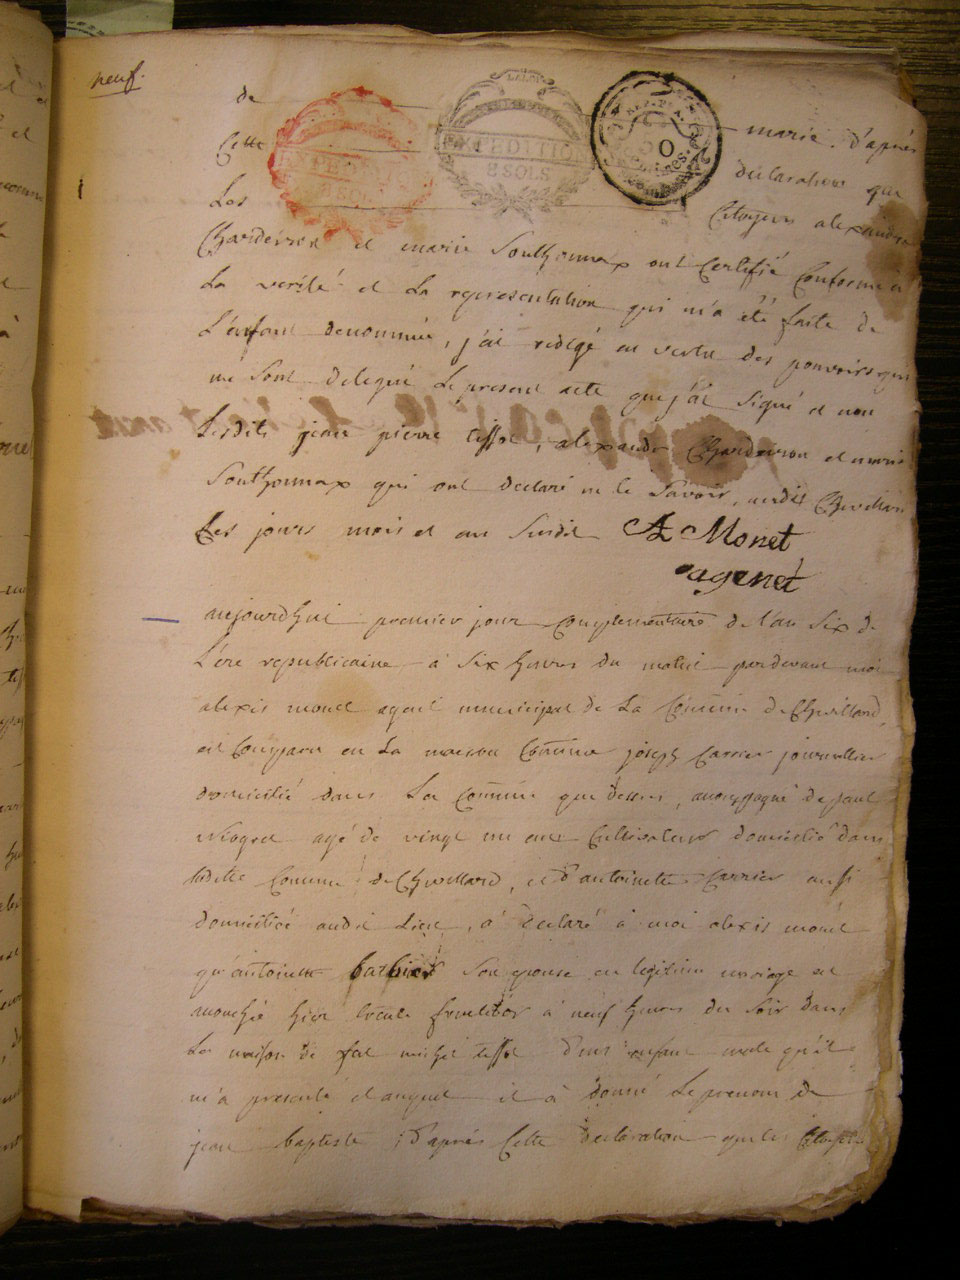 neuf.
de marie. d'après
Cette declaration que
Les Citoyens alexandre
Charderron et marie Southonnax ont Certifié Conforme a
La verité et La representation qui m'a été faite de
L'enfant denommée, j'ai redigé en vertu des pouvoirs qui
me sont delegué Le present acte que j'ai signé et non
Lesdits jean pierre tissot, alexandre Charderron et marie
Southonnax qui ont declaré ne le savoir, audit Chevillard
Les jours mois et an susdit A Monet
agenet
EXPEDITION
8 SOLS
EXPEDITION
8 SOLS
50
Centimes.
aujourdhui premier jour complementaire de l'an six de
L'ère republicaine à six heures du matin pardevant moi
alexis monet agent municipal de La Comune de Chevillard,
est Comparu en La maison Comune joseph Carrier journallier
domicilié dans La Comune que dessus, accompagné de paul
agé de vingt un ans Cultivateur domicilié dans
ladite Comune de Chevillard, et d'antoinette Carrier aussi
domiciliée audit Lieu, à declaré à moi alexis monet
qu'antoinette barbier son epouse en legitime mariage est
accouchée hier trente fructidor à neuf heures du soir dans
La maison de michel tissot d'un enfant male qu'il
m'a presenté et auquel il à donné Le prenom de
jean baptiste, d'après Cette declaration que les Citoyens